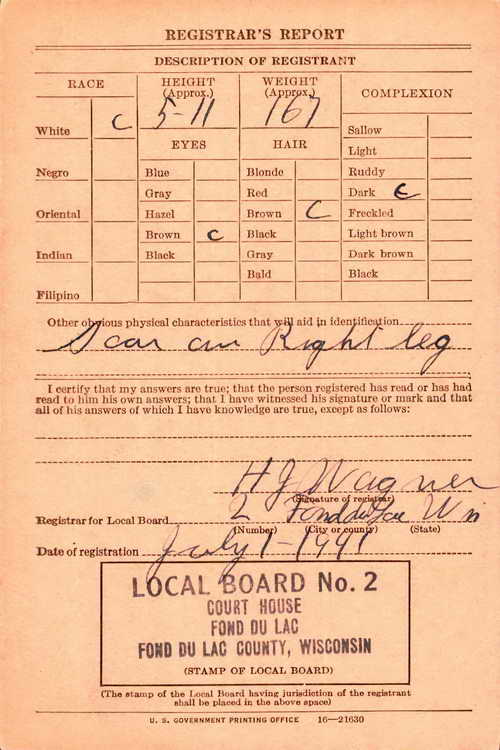 REGISTRAR'S REPORT
DESCRIPTION OF REGISTRANT
RACE
HEIGHT (Approx.)
WEIGHT (Approx.)
COMPLEXION
5-11
167
White C
EYES
HAIR
Sallow
Light
Negro
Blue
Blonde
Ruddy
Gray
Red
Dark C
Oriental
Hazel
Brown C
Freckled
Brown C
Black
Light brown
Indian
Black
Gray
Dark brown
Bald
Black
Filipino
Other obvious physical characteristics that will aid in identification
Scar on Right leg
I certify that my answers are true; that the person registered has read or has had
read to him his own answers; that I have witnessed his signature or mark and that
all of his answers of which I have knowledge are true, except as follows:
H J Wagner
(Signature of registrar)
Registrar for Local Board 2 Fond du Lac Wis
(Number) (City or county) (State)
Date of registration July 1-1941
LOCAL BOARD No. 2
COURT HOUSE
FOND DU LAC
FOND DU LAC COUNTY, WISCONSIN
(STAMP OF LOCAL BOARD)
(The stamp of the Local Board having jurisdiction of the registrant
shall be placed in the above space)
U. S. GOVERNMENT PRINTING OFFICE 16—21630